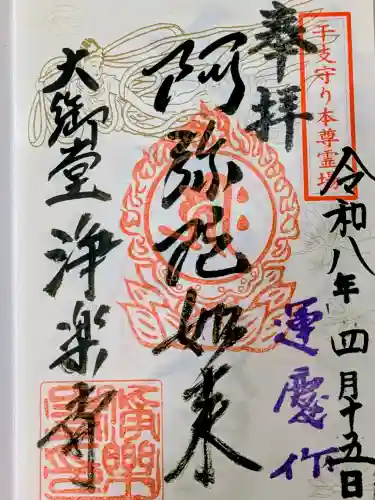 奉拝
干支守り本尊霊場
令和八年四月十五日
運慶作
阿弥陀如来
大御堂 浄楽寺